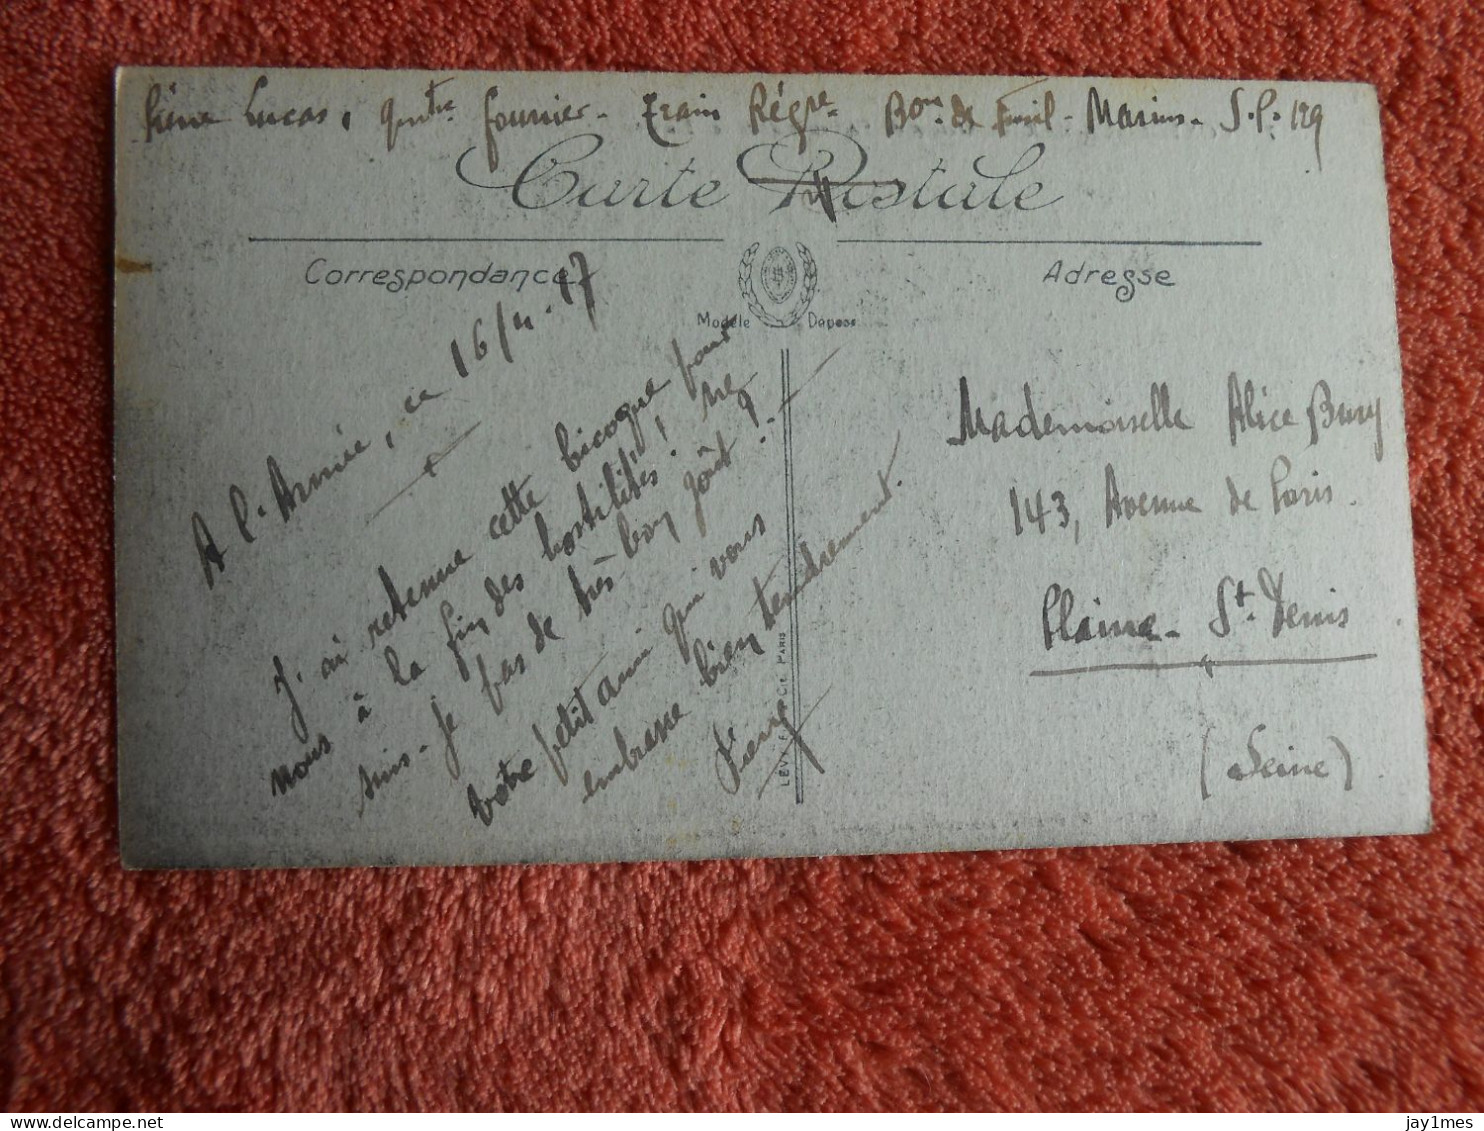 Pierre Lucas, qur tre fourrier - Train Régre - Bon de Fusil - Marins - S.P. 129
Carte Postale
Correspondance
Adresse
Modèle Déposé
A l'Armée, ce 16/4.17
J'ai retenue cette bicoque pour
nous à la fin des hostilités, ne
suis-je pas de très bon goût ?
Votre petit ami qui vous
embrasse bien tendrement.
Pierre
Mademoiselle Alice Bury
143, Avenue de Paris.
Plaine - St Denis
(Seine)
LÉVY F & Cie PARIS
jay1mes